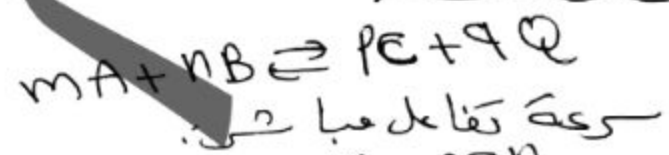 mA + nB ⇄ PC + qQ
سرعة تفاعل مباشر: